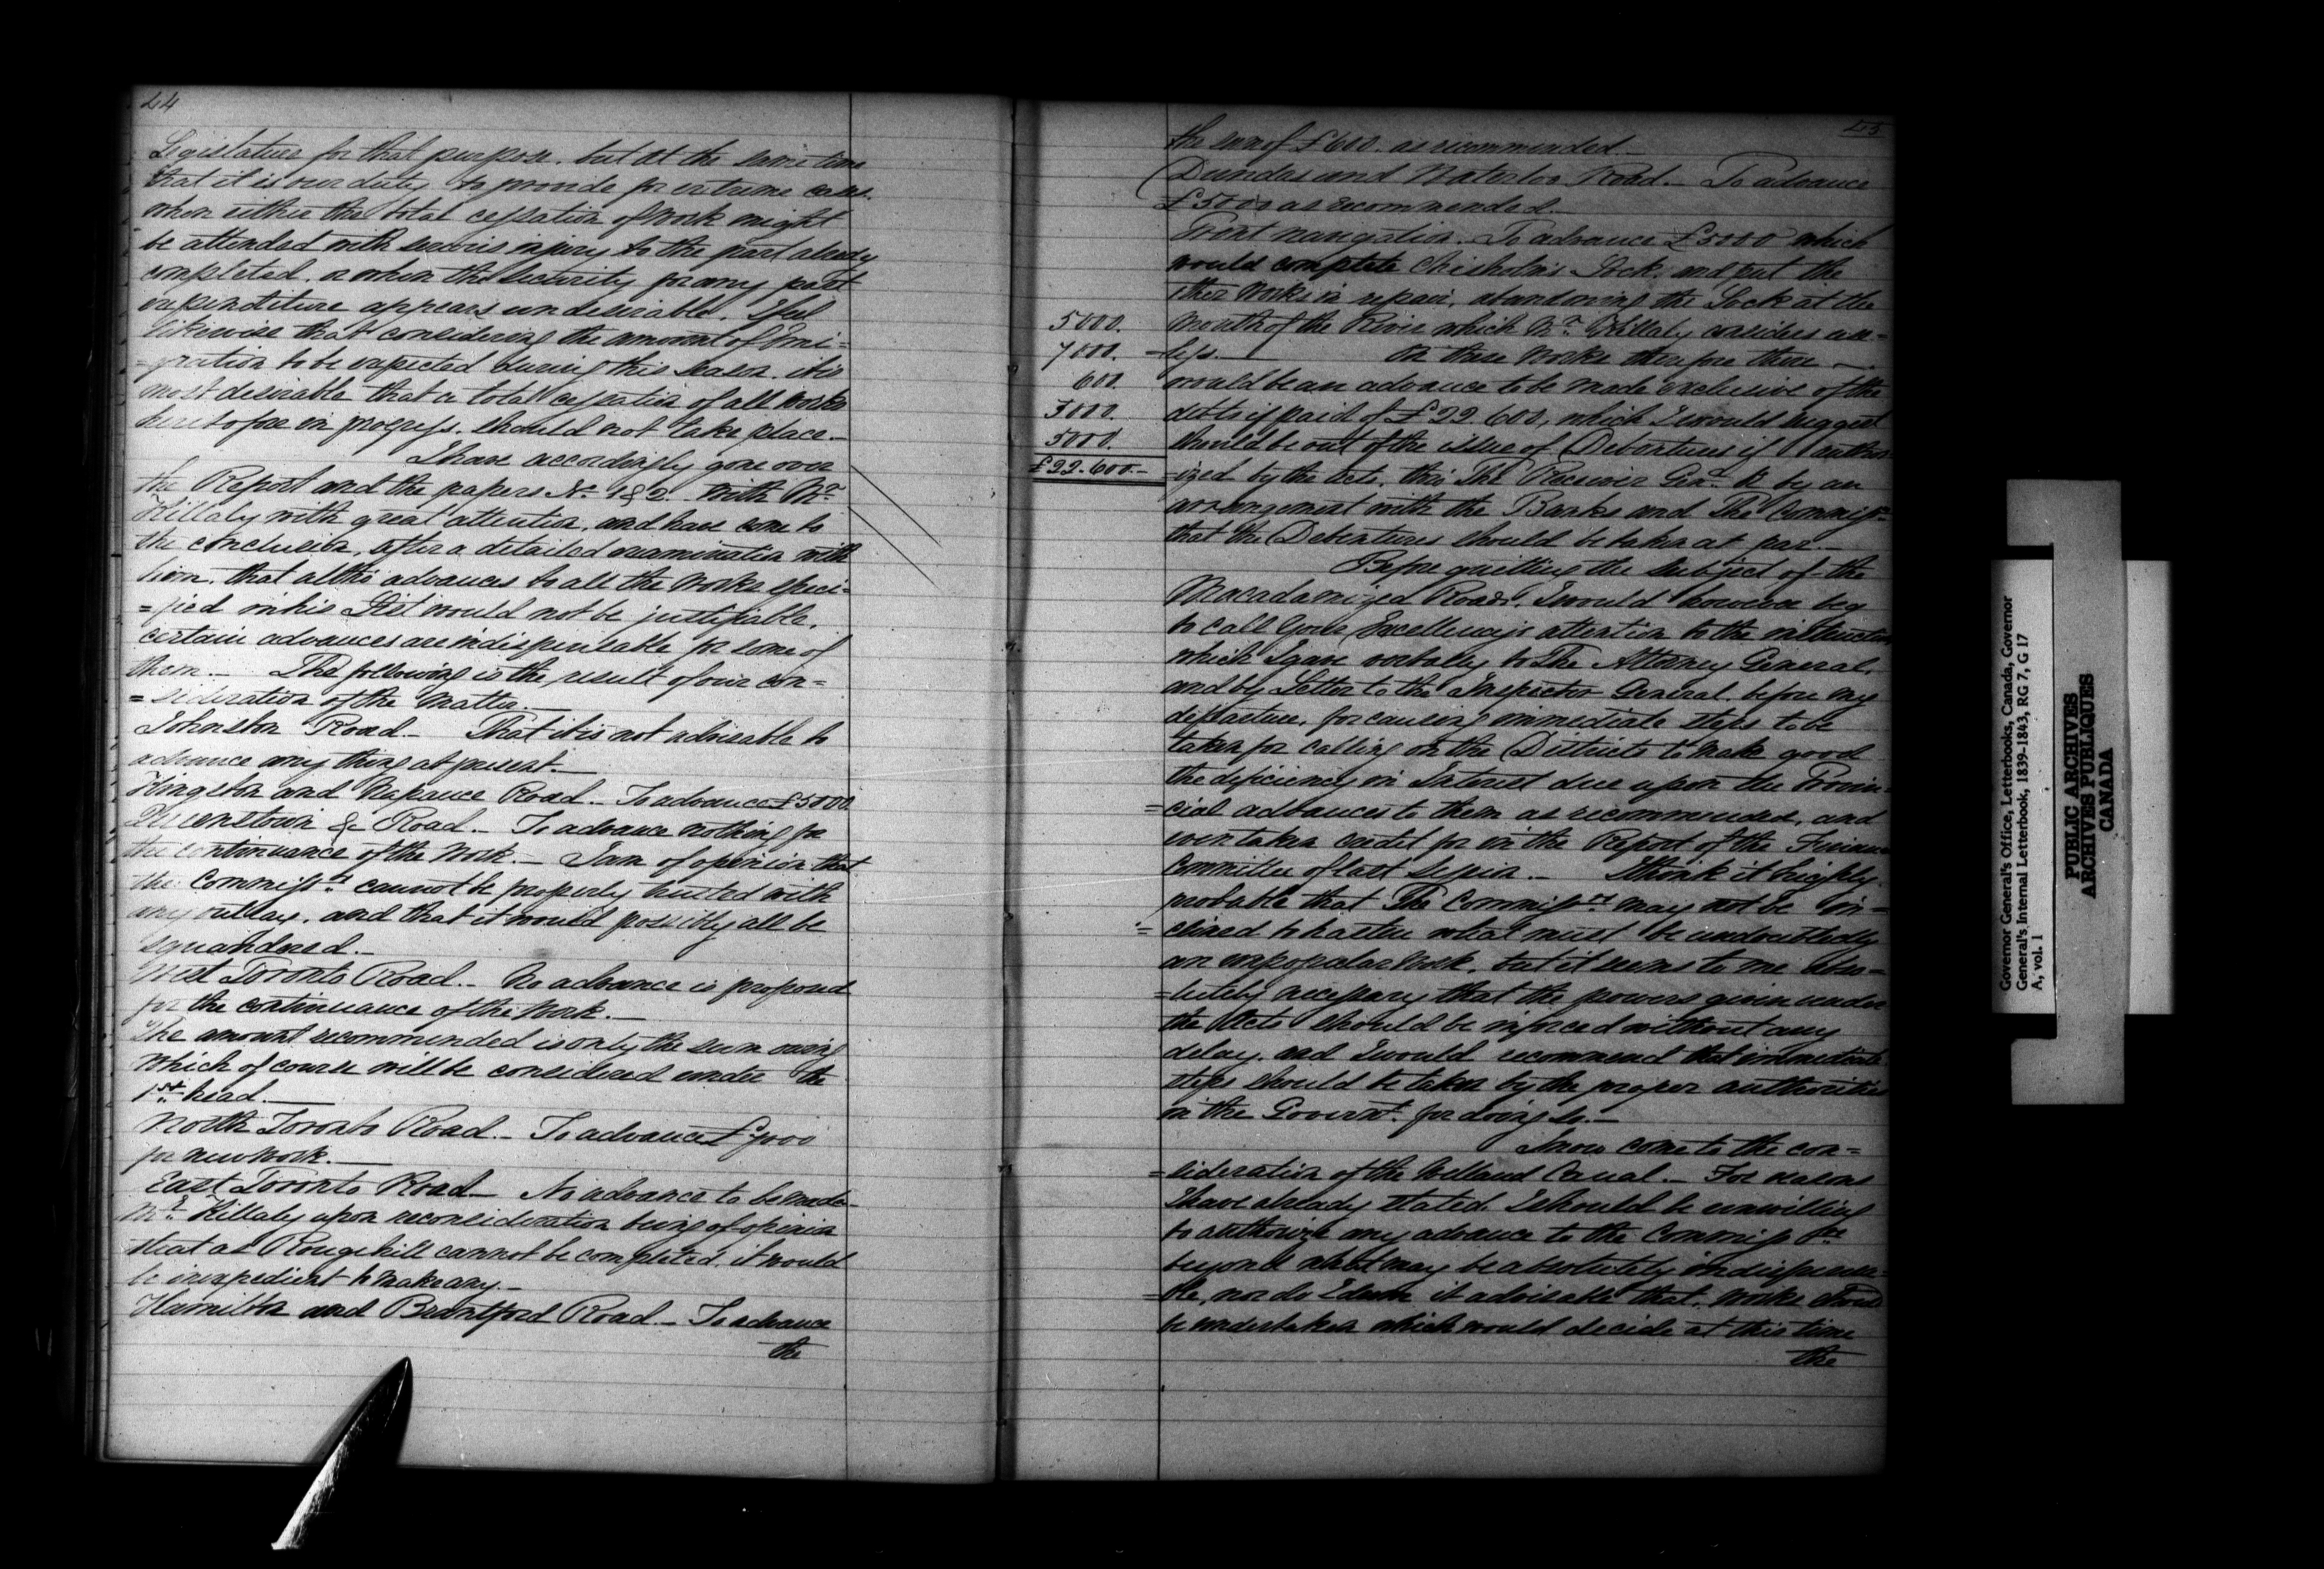 44
Legislature for that purpose. but at the same time
that it is our duty to provide for extreme cases
when either the total cessation of Work might
be attended with serious injury to the part already
completed. or when the security for any past
expenditure appears undesirable. I feel
likewise that considering the amount of Emi=
=gration to be expected during this Season. it is
most desirable that a total cessation of all works
heretofore in progress. should not take place._
I have accordingly gone over
the Report and the papers No. 1 & 2. With Mr
Killaly with great attention, and have come to
the conclusion, after a detailed examination with
him. that altho' advances to all the Works speci=
=fied in his List would not be justifiable,
certain advances are indispensable for some of
them._ The following is the result of our con=
=sideration of the Matter._
Johnston Road._ That it is not advisable to
advance any thing at present._
Kingston and Napanee Road._ To advance £5000.
Queenstown &c Road._ To advance nothing for
the continuance of the Work._ I am of opinion that
the Commissrs cannot be properly trusted with
any outlay. and that it would possibly all be
squandered._
West Toronto Road._ No advance is proposed
for the continuance of the Work._
The amount recommended is only the sum owing
Which of course will be considered under the
1st head._
North Toronto Road._ To advance £7000
for new Work._
East Toronto Road_ No advance to be made
Mr Killaly upon reconsideration being of opinion
that as Rouge hill cannot be completed. it would
be inexpedient to make any._
Hamilton and Brantford Road._ To advance
the
45
the sum of £600. as recommended_
Dundas and Waterloo Road._ To advance
£5000 as recommended._
Trent navigation. To advance £5000 which
would complete Chisholm's Lock. and put the
other Works in repair, abandoning the Lock at the
5000. Mouth of the River which Mr Killaly considers use=
7000. =less._ On these Works therefore there
600 would be an advance to be made exclusive of the
5000. debts if paid of £22.600, which I would suggest
5000. should be out of the issue of Debentures if author
£22.600._ =ized by the Acts. thro' The Receiver Genl. & by an
arrangement with the Banks and The Commissrs
that the Debentures should be taken at par._
Before quitting the subject of the
Macadamized Roads. I would however beg
to call Your Excellency's attention to the instructions
which I gave verbally to The Attorney General,
and by Letter to the Inspector General. before my
departure, for causing immediate steps to be
taken for calling on the Districts to make good
the deficiency in Interest due upon the Provin=
=cial advances to them as recommended, and
even taken credit for in the Report of the Finance
Committee of last Session._ I think it highly
probable that The Commissrs may not be in=
=clined to hasten what must be undoubtedly
an unpopular Work. but it seems to me abso=
=lutely necessary that the powers given under
the Acts should be inforced without any
delay. and I would recommend that immediate
steps should be taken by the proper authorities
in the Governt. for doing so._
I now come to the con=
=sideration of the Welland Canal._ For reasons
I have already stated. I should be unwilling
to authorize any advance to the Commissrs
beyond what may be absolutely indispensa=
=ble, nor do I deem it advisable that, works should
be undertaken which would decide at this time
the
Governor General's Office, Letterbooks, Canada, Governor
General's Internal Letterbook, 1839-1843, RG 7, G 17
A, vol. 1
PUBLIC ARCHIVES
ARCHIVES PUBLIQUES
CANADA